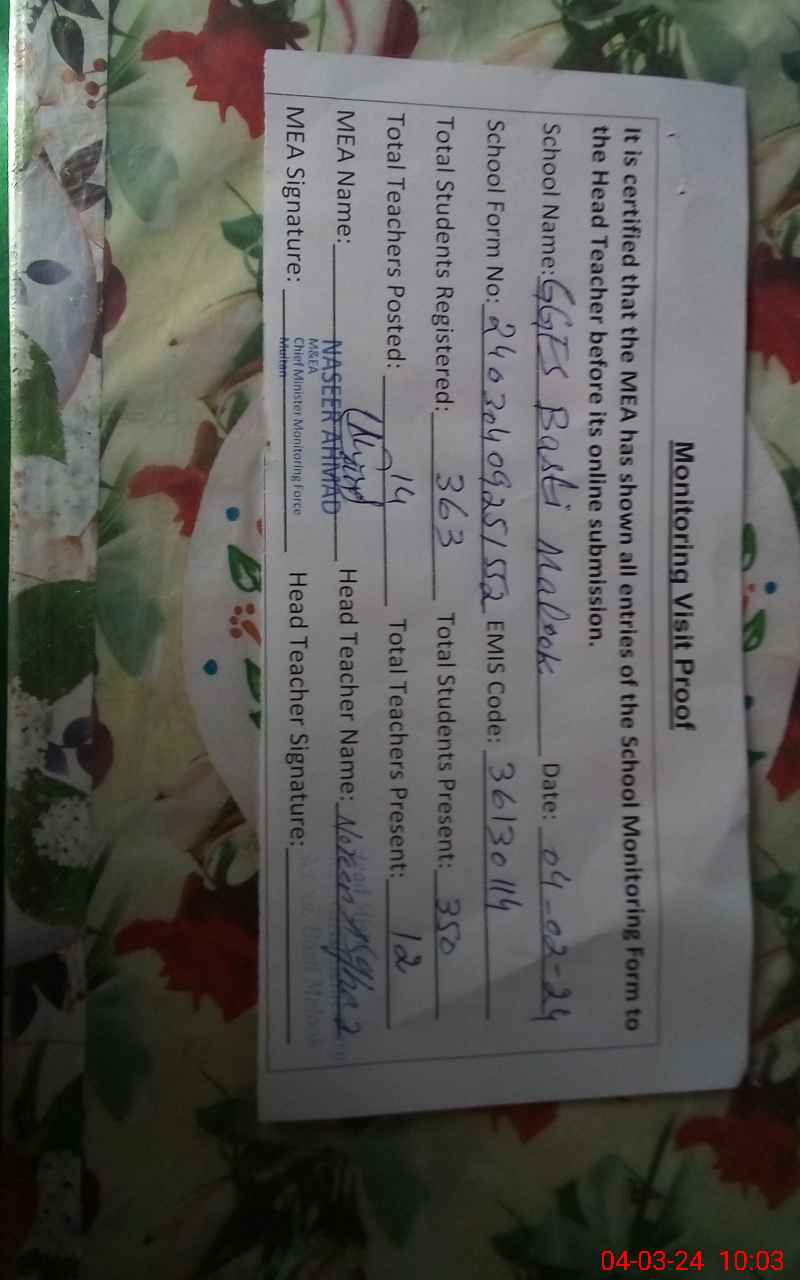 Monitoring Visit Proof
It is certified that the MEA has shown all entries of the School Monitoring Form to
the Head Teacher before its online submission.
School Name: GGES Basti Malook Date: 04-02-24
School Form No: 24030409251552 EMIS Code: 36130114
Total Students Registered: 363 Total Students Present: 350
Total Teachers Posted: 14 Total Teachers Present: 12
MEA Name: NASEER AHMAD Head Teacher Name: Noreen Asghar
M&EA
Chief Minister Monitoring Force
Multan
MEA Signature: Head Teacher Signature:
Malook
04-03-24 10:03